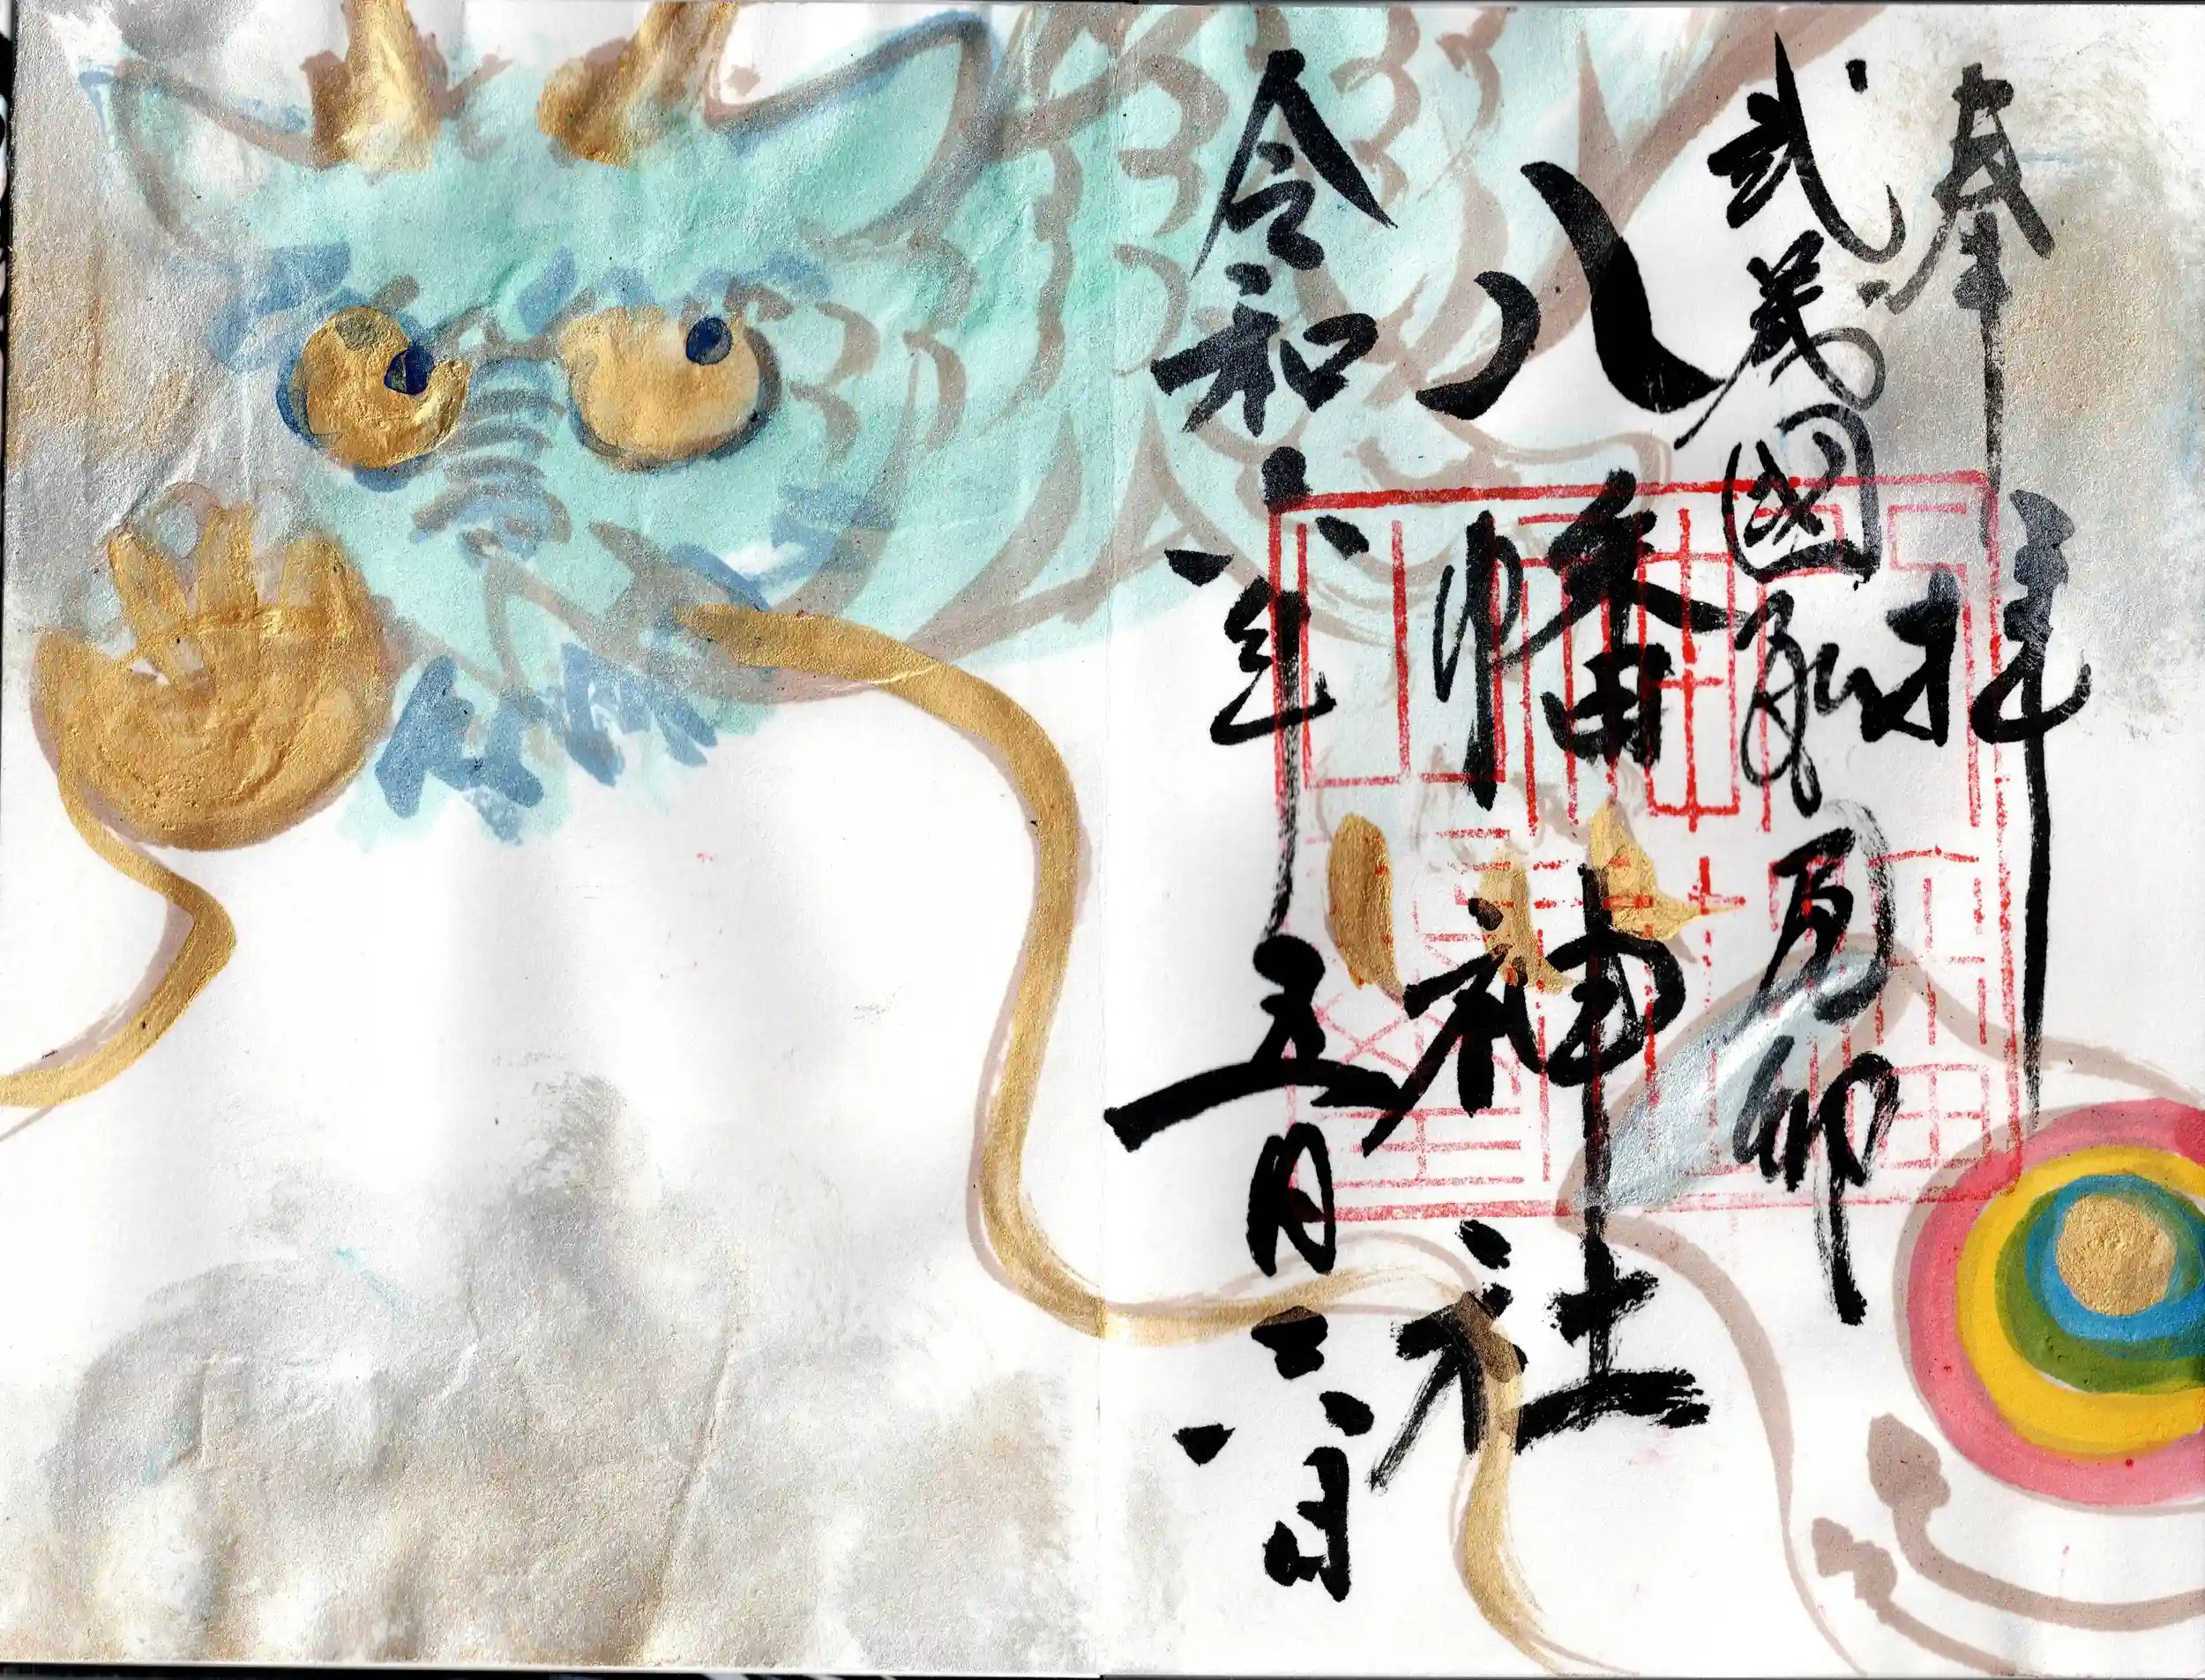 奉拝
武蔵國
八幡神社
令和六年五月二八日